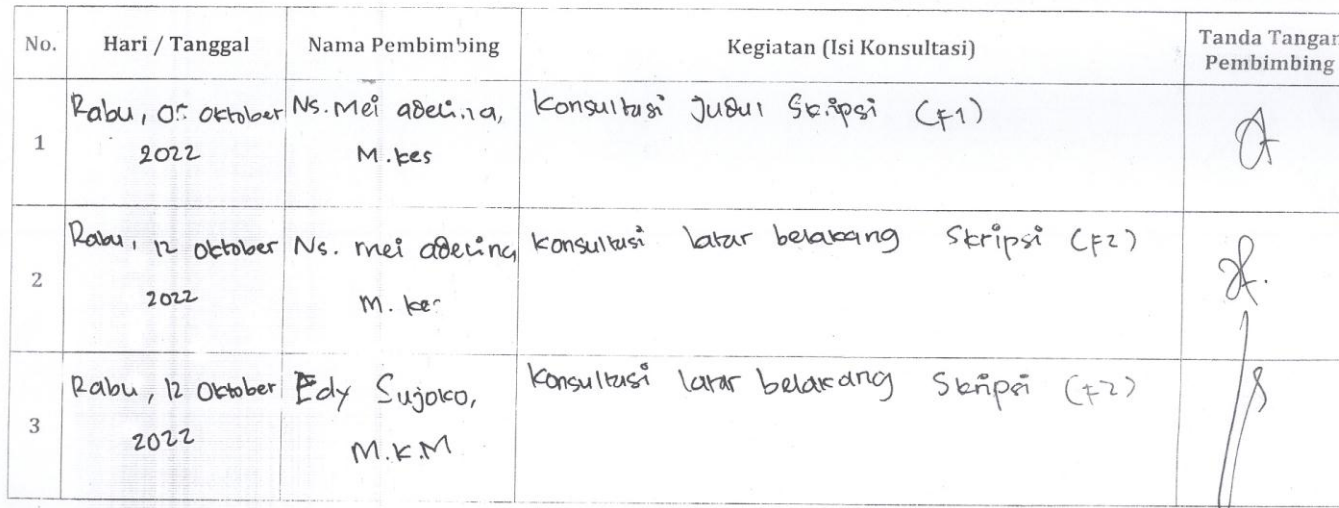 No. Hari / Tanggal Nama Pembimbing Kegiatan (Isi Konsultasi) Tanda Tangan Pembimbing
1 Rabu, 05 Oktober 2022 Ns. Mei adelina, M.kes Konsultasi Judul Skripsi (F1)
2 Rabu, 12 Oktober 2022 Ns. mei adelina M. kes Konsultasi latar belakang Skripsi (F2)
3 Rabu, 12 Oktober 2022 Edy Sujoko, M.K.M Konsultasi latar belakang Skripsi (F2)